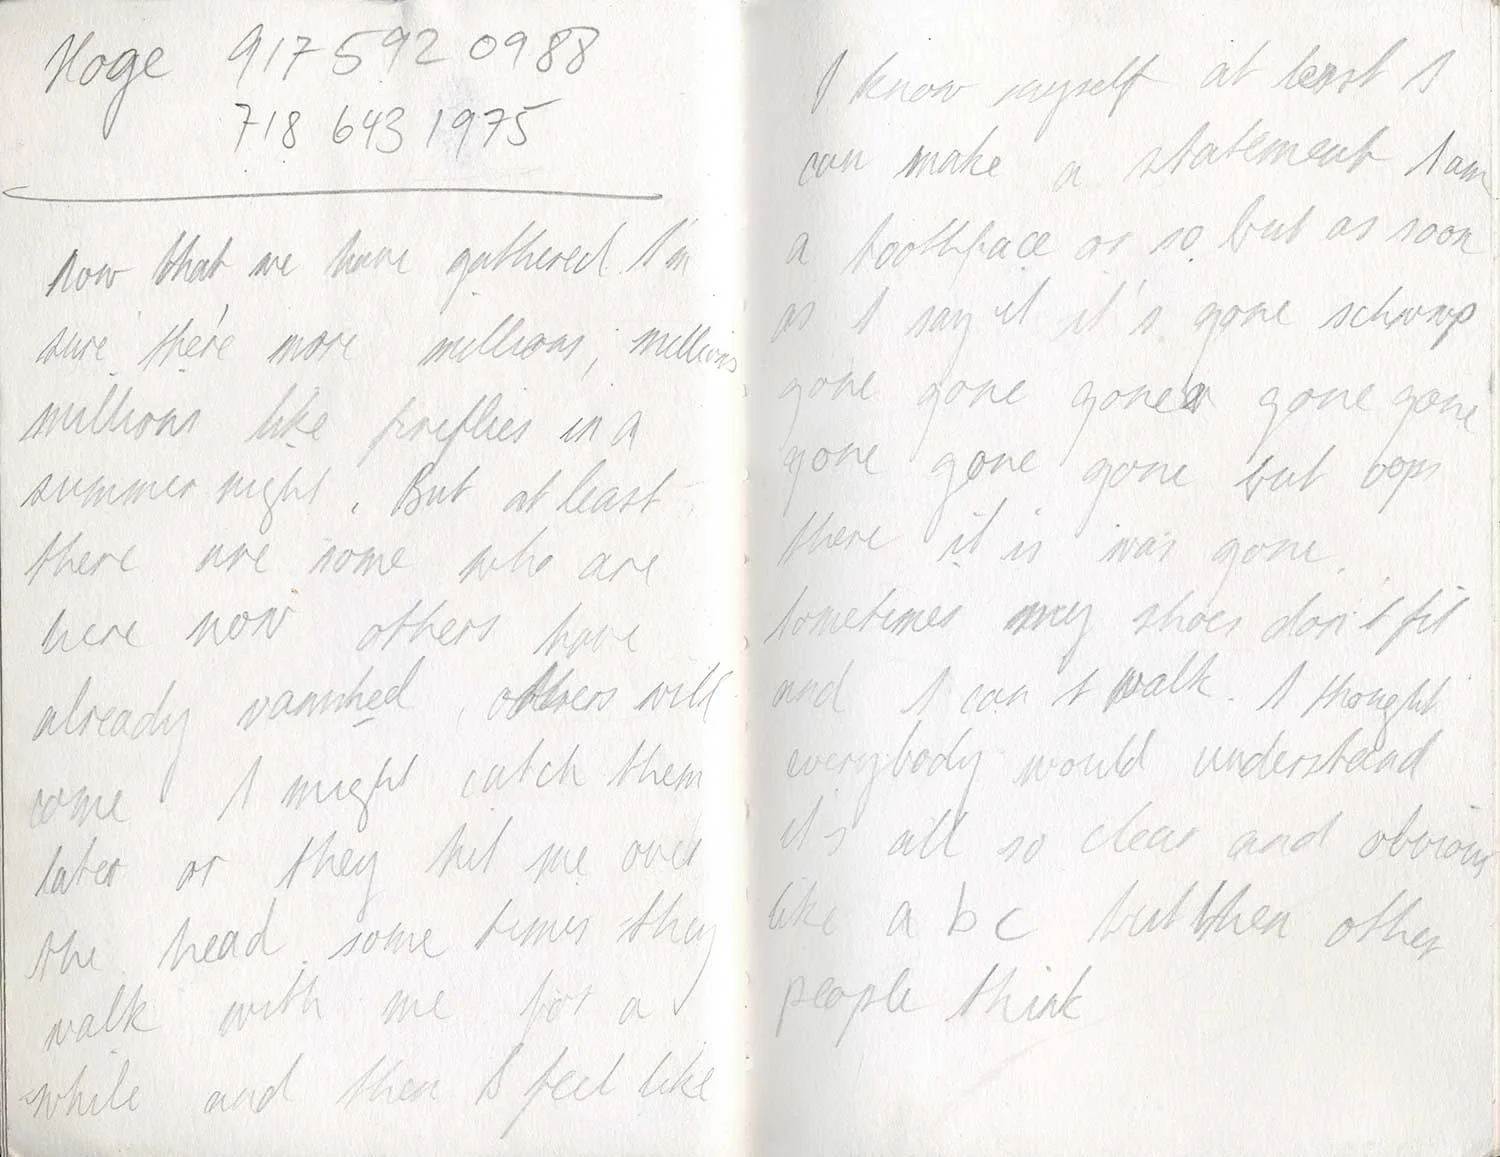 Hoge 917 592 0988
718 643 1975
now that we have gathered I'm
sure there more millions, millions
millions like fireflies in a
summer night. But at least
there are some who are
here now others have
already vanished, others will
come I might catch them
later or they hit me over
the head. some times they
walk with me for a
while and then I feel like
I know myself at least I
can make a statement I am
a toothface or so but as soon
as I say it it's gone schwup
gone gone gone gone gone
gone gone gone but oops
there it is was gone.
sometimes my shoes don't fit
and I can't walk. I thought
everybody would understand
it's all so clear and obvious
like a b c but then other
people think